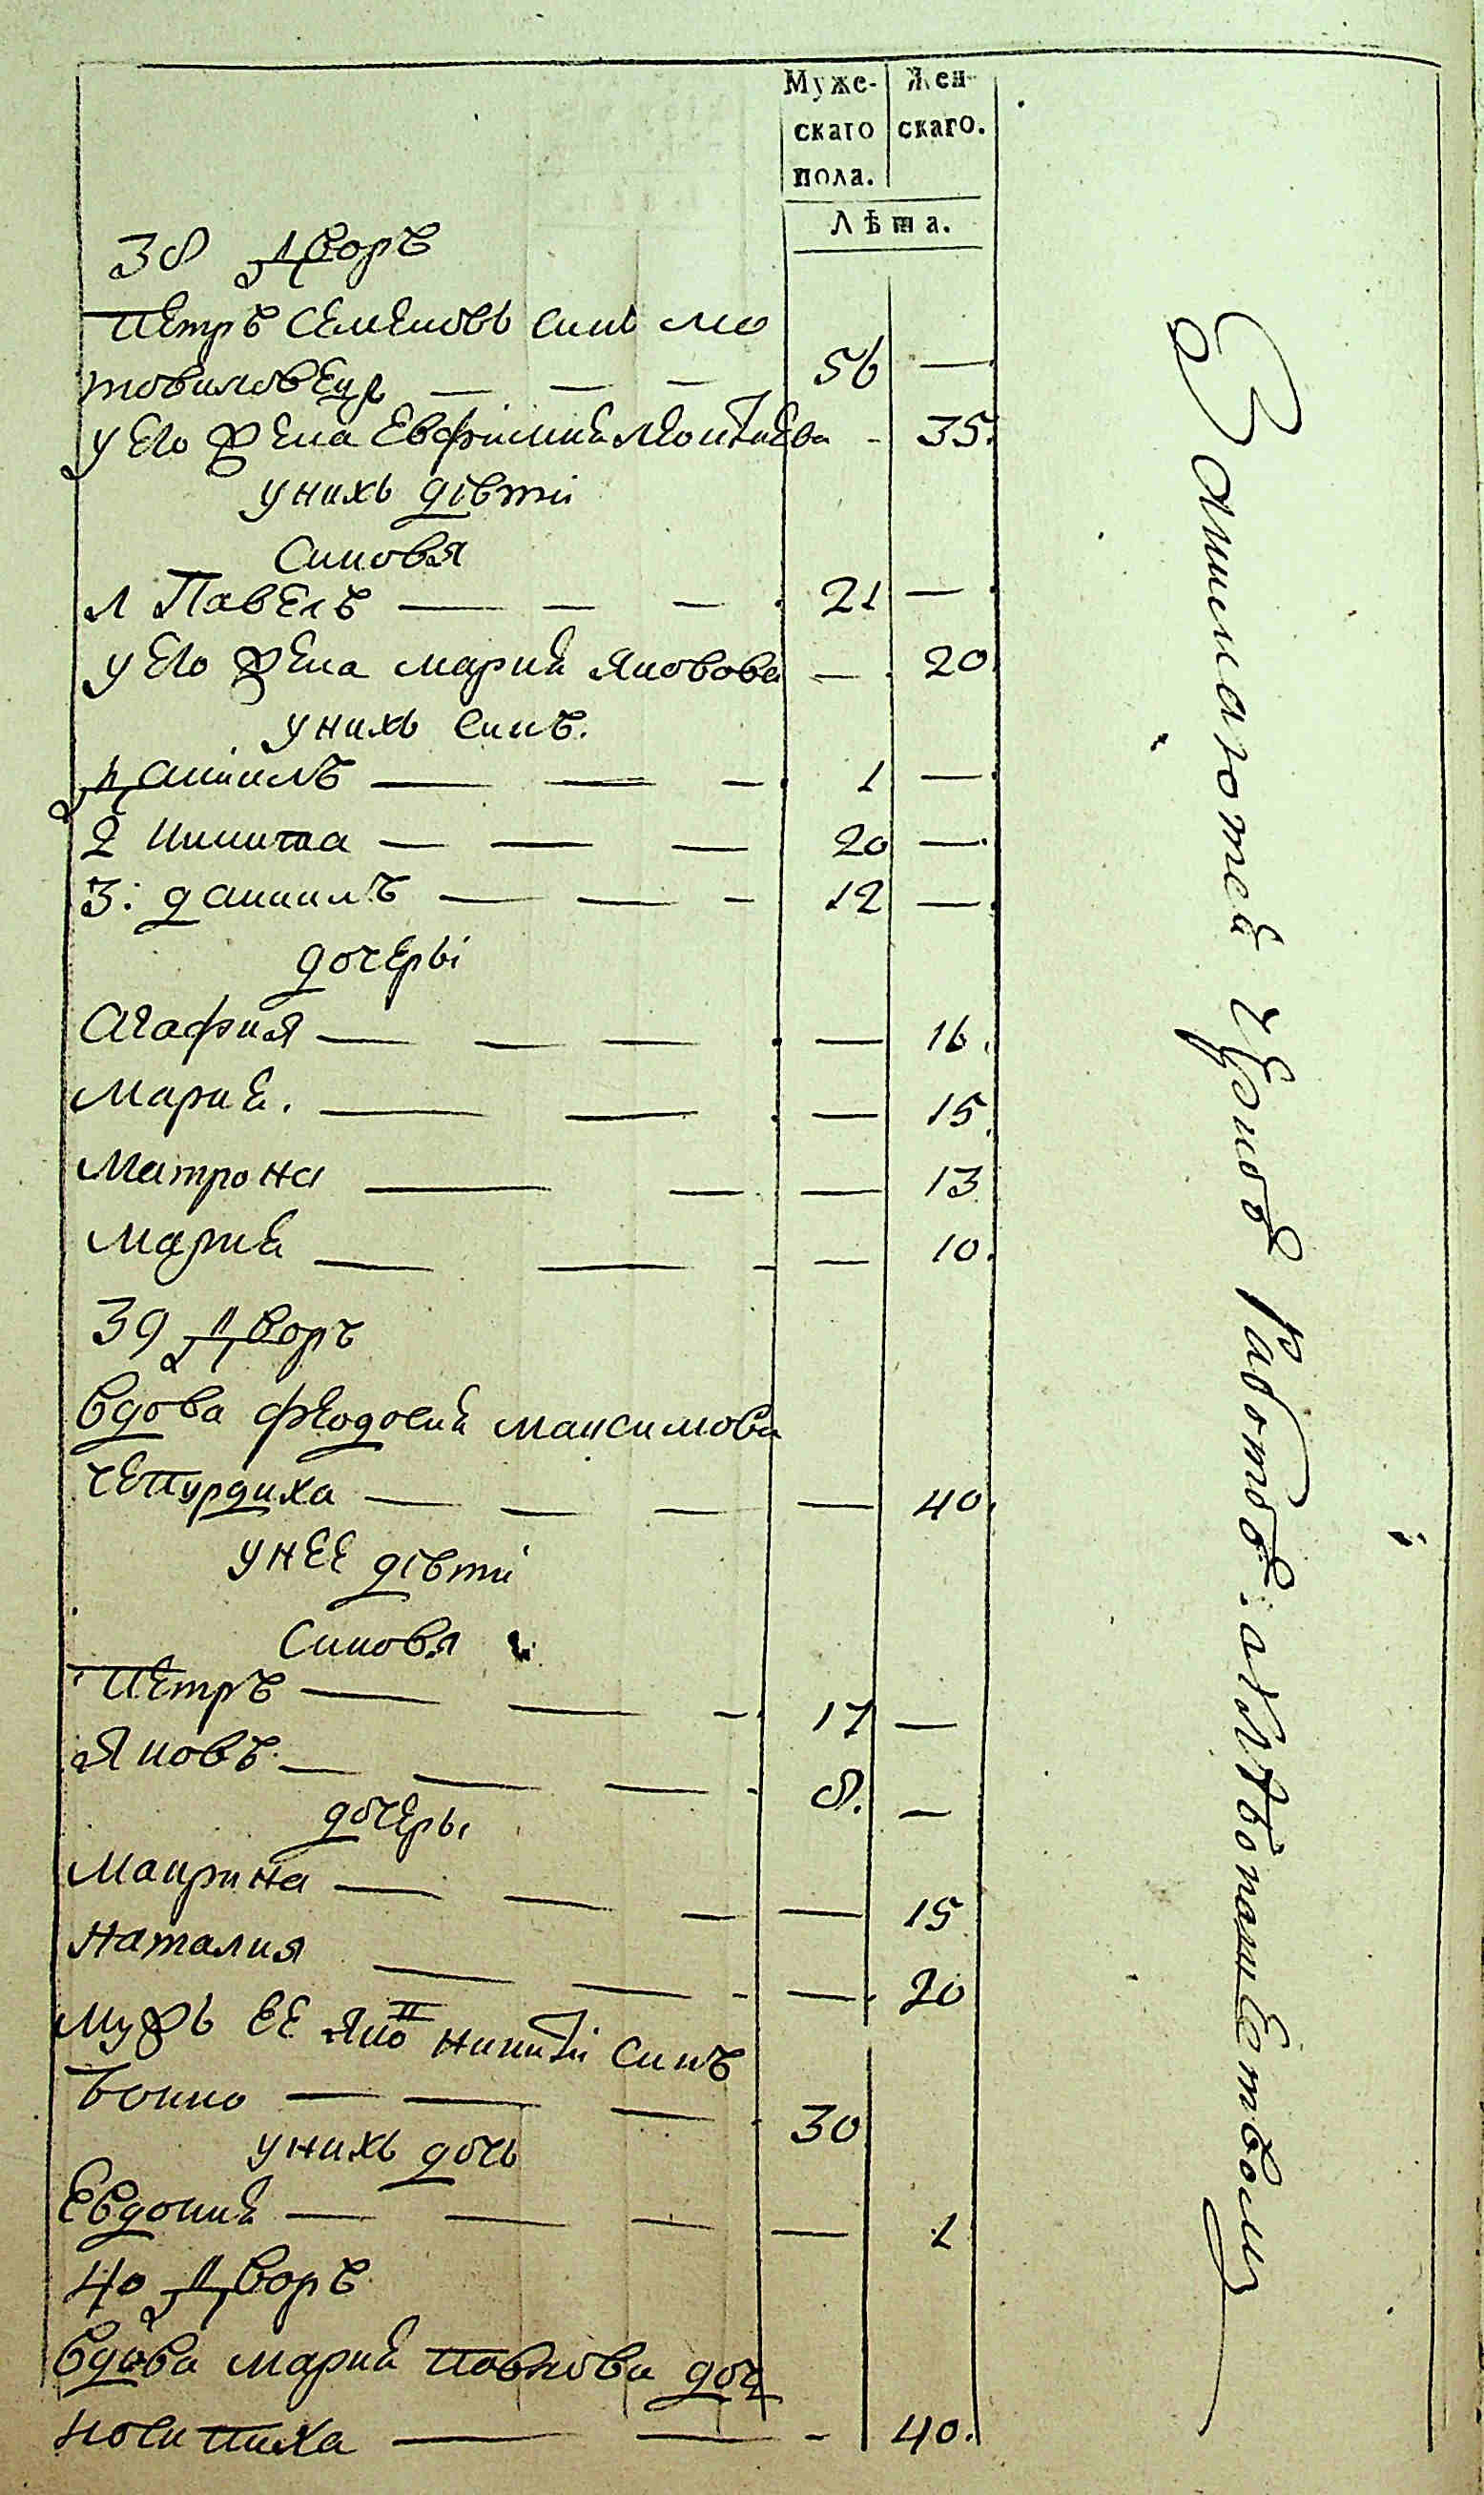 Муже-
скаго
пола.
Жен-
скаго.
Лѣта.
38 Дворъ
Петръ Семеновъ синъ Мо
товиловецъ — — — 56 —
у его жена Евфимия Леонтиева - 35.
у нихъ дѣти
Синовя
1 Павелъ — — — 21 —
у его жена Мария Яковова — 20
у нихъ синъ.
Даниилъ — — — 1 —
2 Никита — — — 20 —
3: Даниилъ — — — 12 —
дочеры
Агафия — — — — 16.
Мария. — — — 15
Матрона — — — 13
Мария — — — — 10.
39 Дворъ
Вдова Феодосия Максимова
Чепурдиха — — — — 40.
у нее дѣти
Синовя
Петръ — — — 17 —
Яковъ — — — - 8. —
дочеры
Маирина — — — — 15
Наталия — — - — 20
Мужъ ее Яко Никити синъ
Бойко — — — 30
у нихъ дочь
Евдокия — — — — 1
40 Дворъ
Вдова Мария Павлова доч
Носипиха — — - 40.
Занимаются чрноб работоб: а хлѣбопашетвомъ